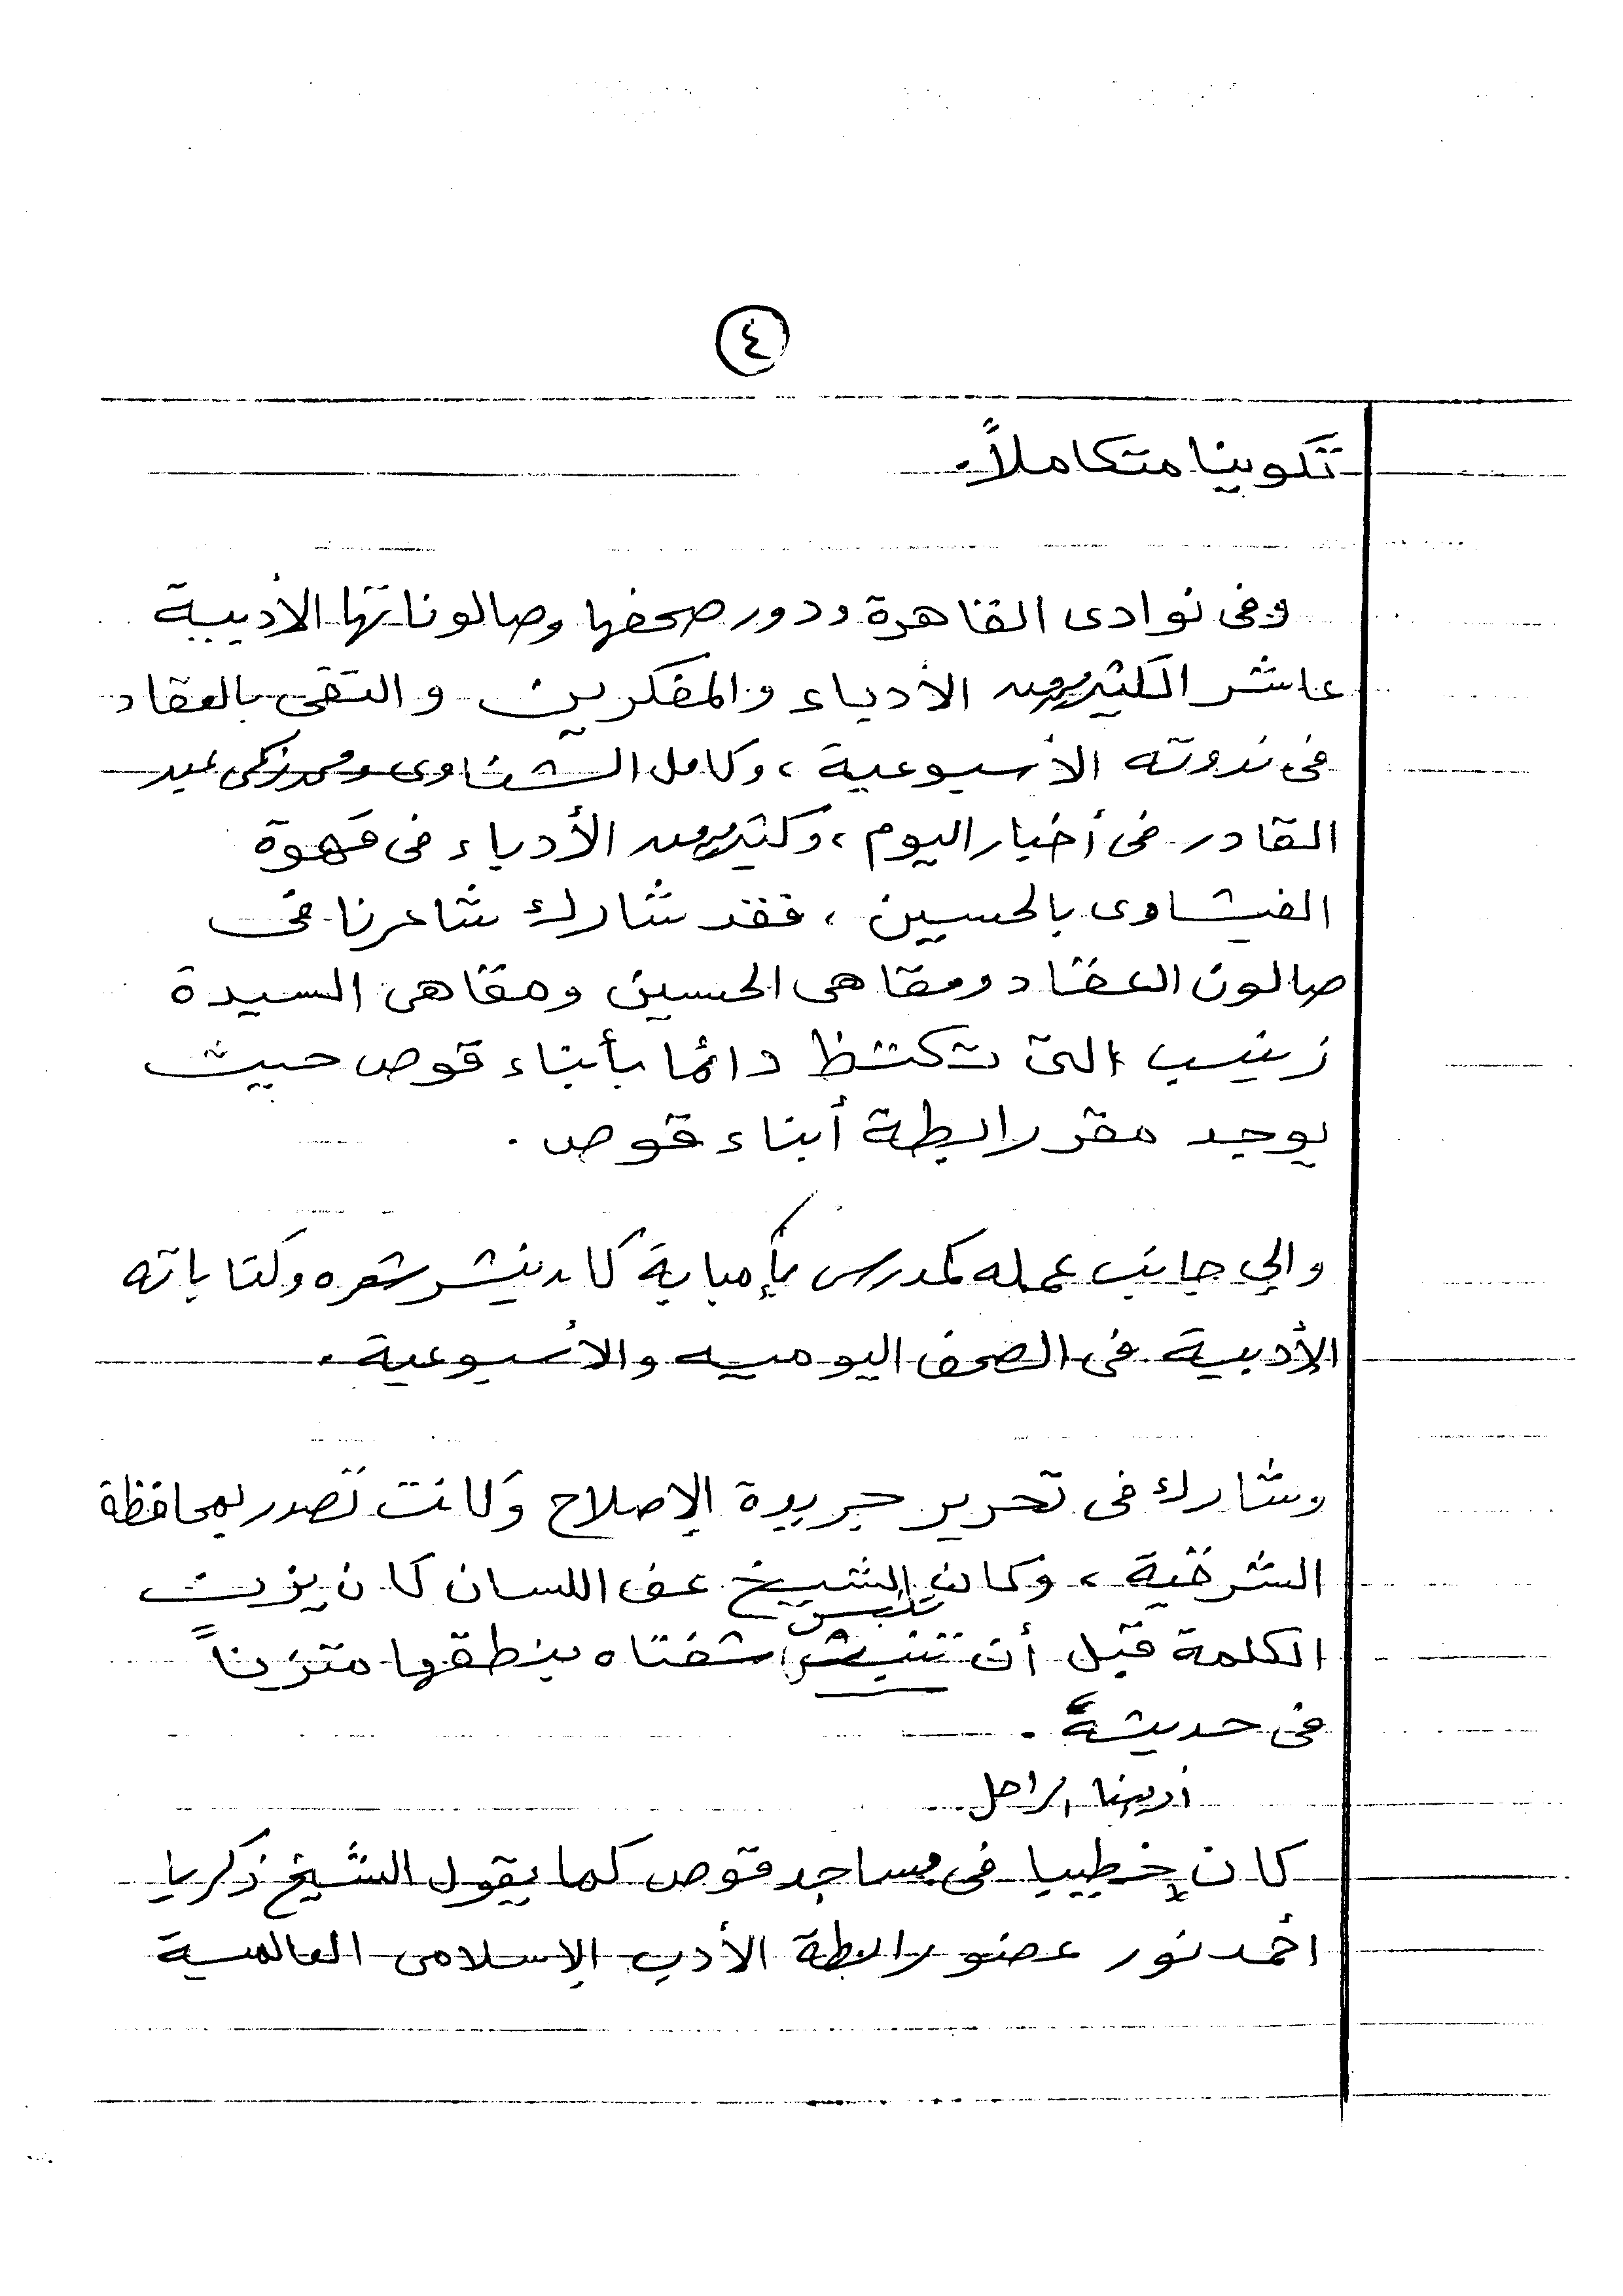 ٤
تكوينا متكاملاً.
وفى نوادى القاهرة ودور صحفها وصالوناتها الأدبية
عاشر الكثير من الأدباء والمفكرين والتقى بالعقاد
فى ندوته الأسبوعية، وكامل الشناوى ومحمد زكى عبد
القادر فى أخبار اليوم، وكثير من الأدباء فى قهوة
الفيشاوى بالحسين، فقد شارك شاعرنا فى
صالون العقاد ومقاهى الحسين ومقاهى السيدة
زينب التى تكتظ دائما بأبناء قوص حيث
يوجد مقر رابطة أبناء قوص.
وإلى جانب عمله كمدرس بإمبابة كان ينشر شعره وكتاباته
الأدبية فى الصحف اليومية والأسبوعية.
وشارك فى تحرير جريدة الإصلاح وكانت تصدر بمحافظة
الشرقية، وكان الشيخ عف اللسان كان يزن
الكلمة قبل أن شفتاه ينطقها متزناً
فى حديثه.
أديبنا الراحل
كان خطيبا فى مساجد قوص كما يقول الشيخ زكريا
أحمد نور عضو رابطة الأدب الإسلامى العالمية